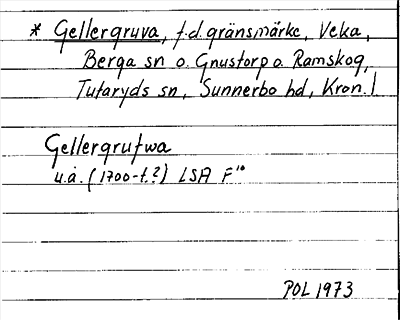 * Gellergruva, f.d. gränsmärke, Veka,
Berga sn o. Gnustorp o. Ramskog,
Tutaryds sn, Sunnerbo hd, Kron. l
Gellergrufwa
u.å. (1700-t.?) LSA F¹⁰
POL 1973